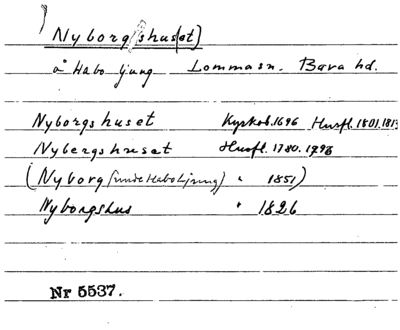 Nyborg[shuset]
å Habo ljung Lommasn. Bara hd.
Nyborgshuset Kyrkob. 1696 Husfl. 1801. 1813
Nybergshuset Husfl. 1780. 1798
(Nyborg (under Habo Ljung) " 1851)
Nyborgshus " 1826
Nr 5537.